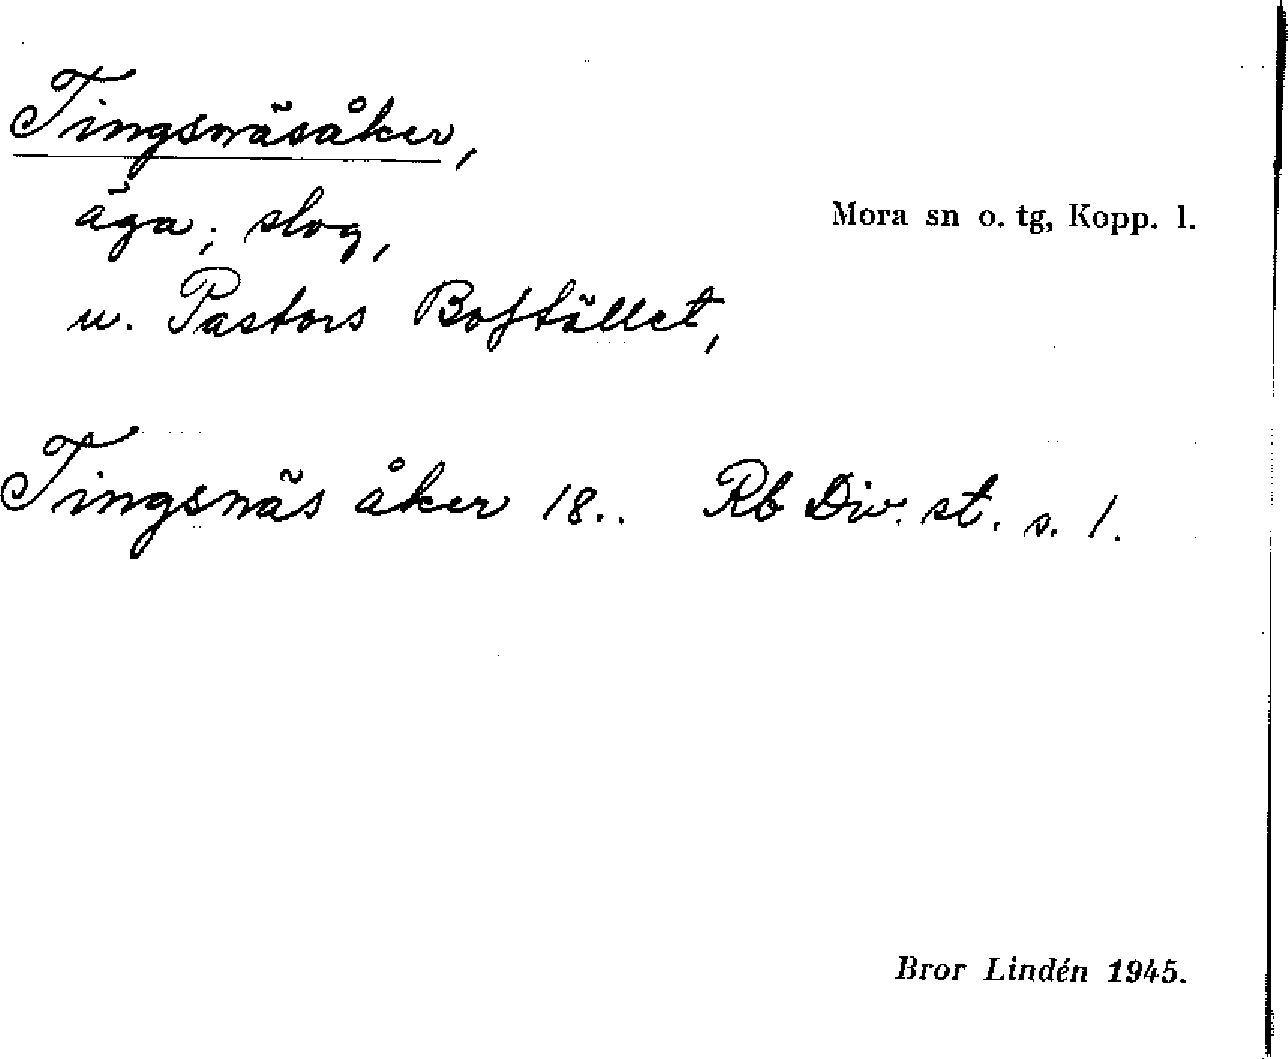 Tingsnäsåker,
äga; slog,
Mora sn o. tg, Kopp. l.
u. Pastors Bostället,
Tingsnäs åker 18.. Rb Div. st. s. 1.
Bror Lindén 1945.